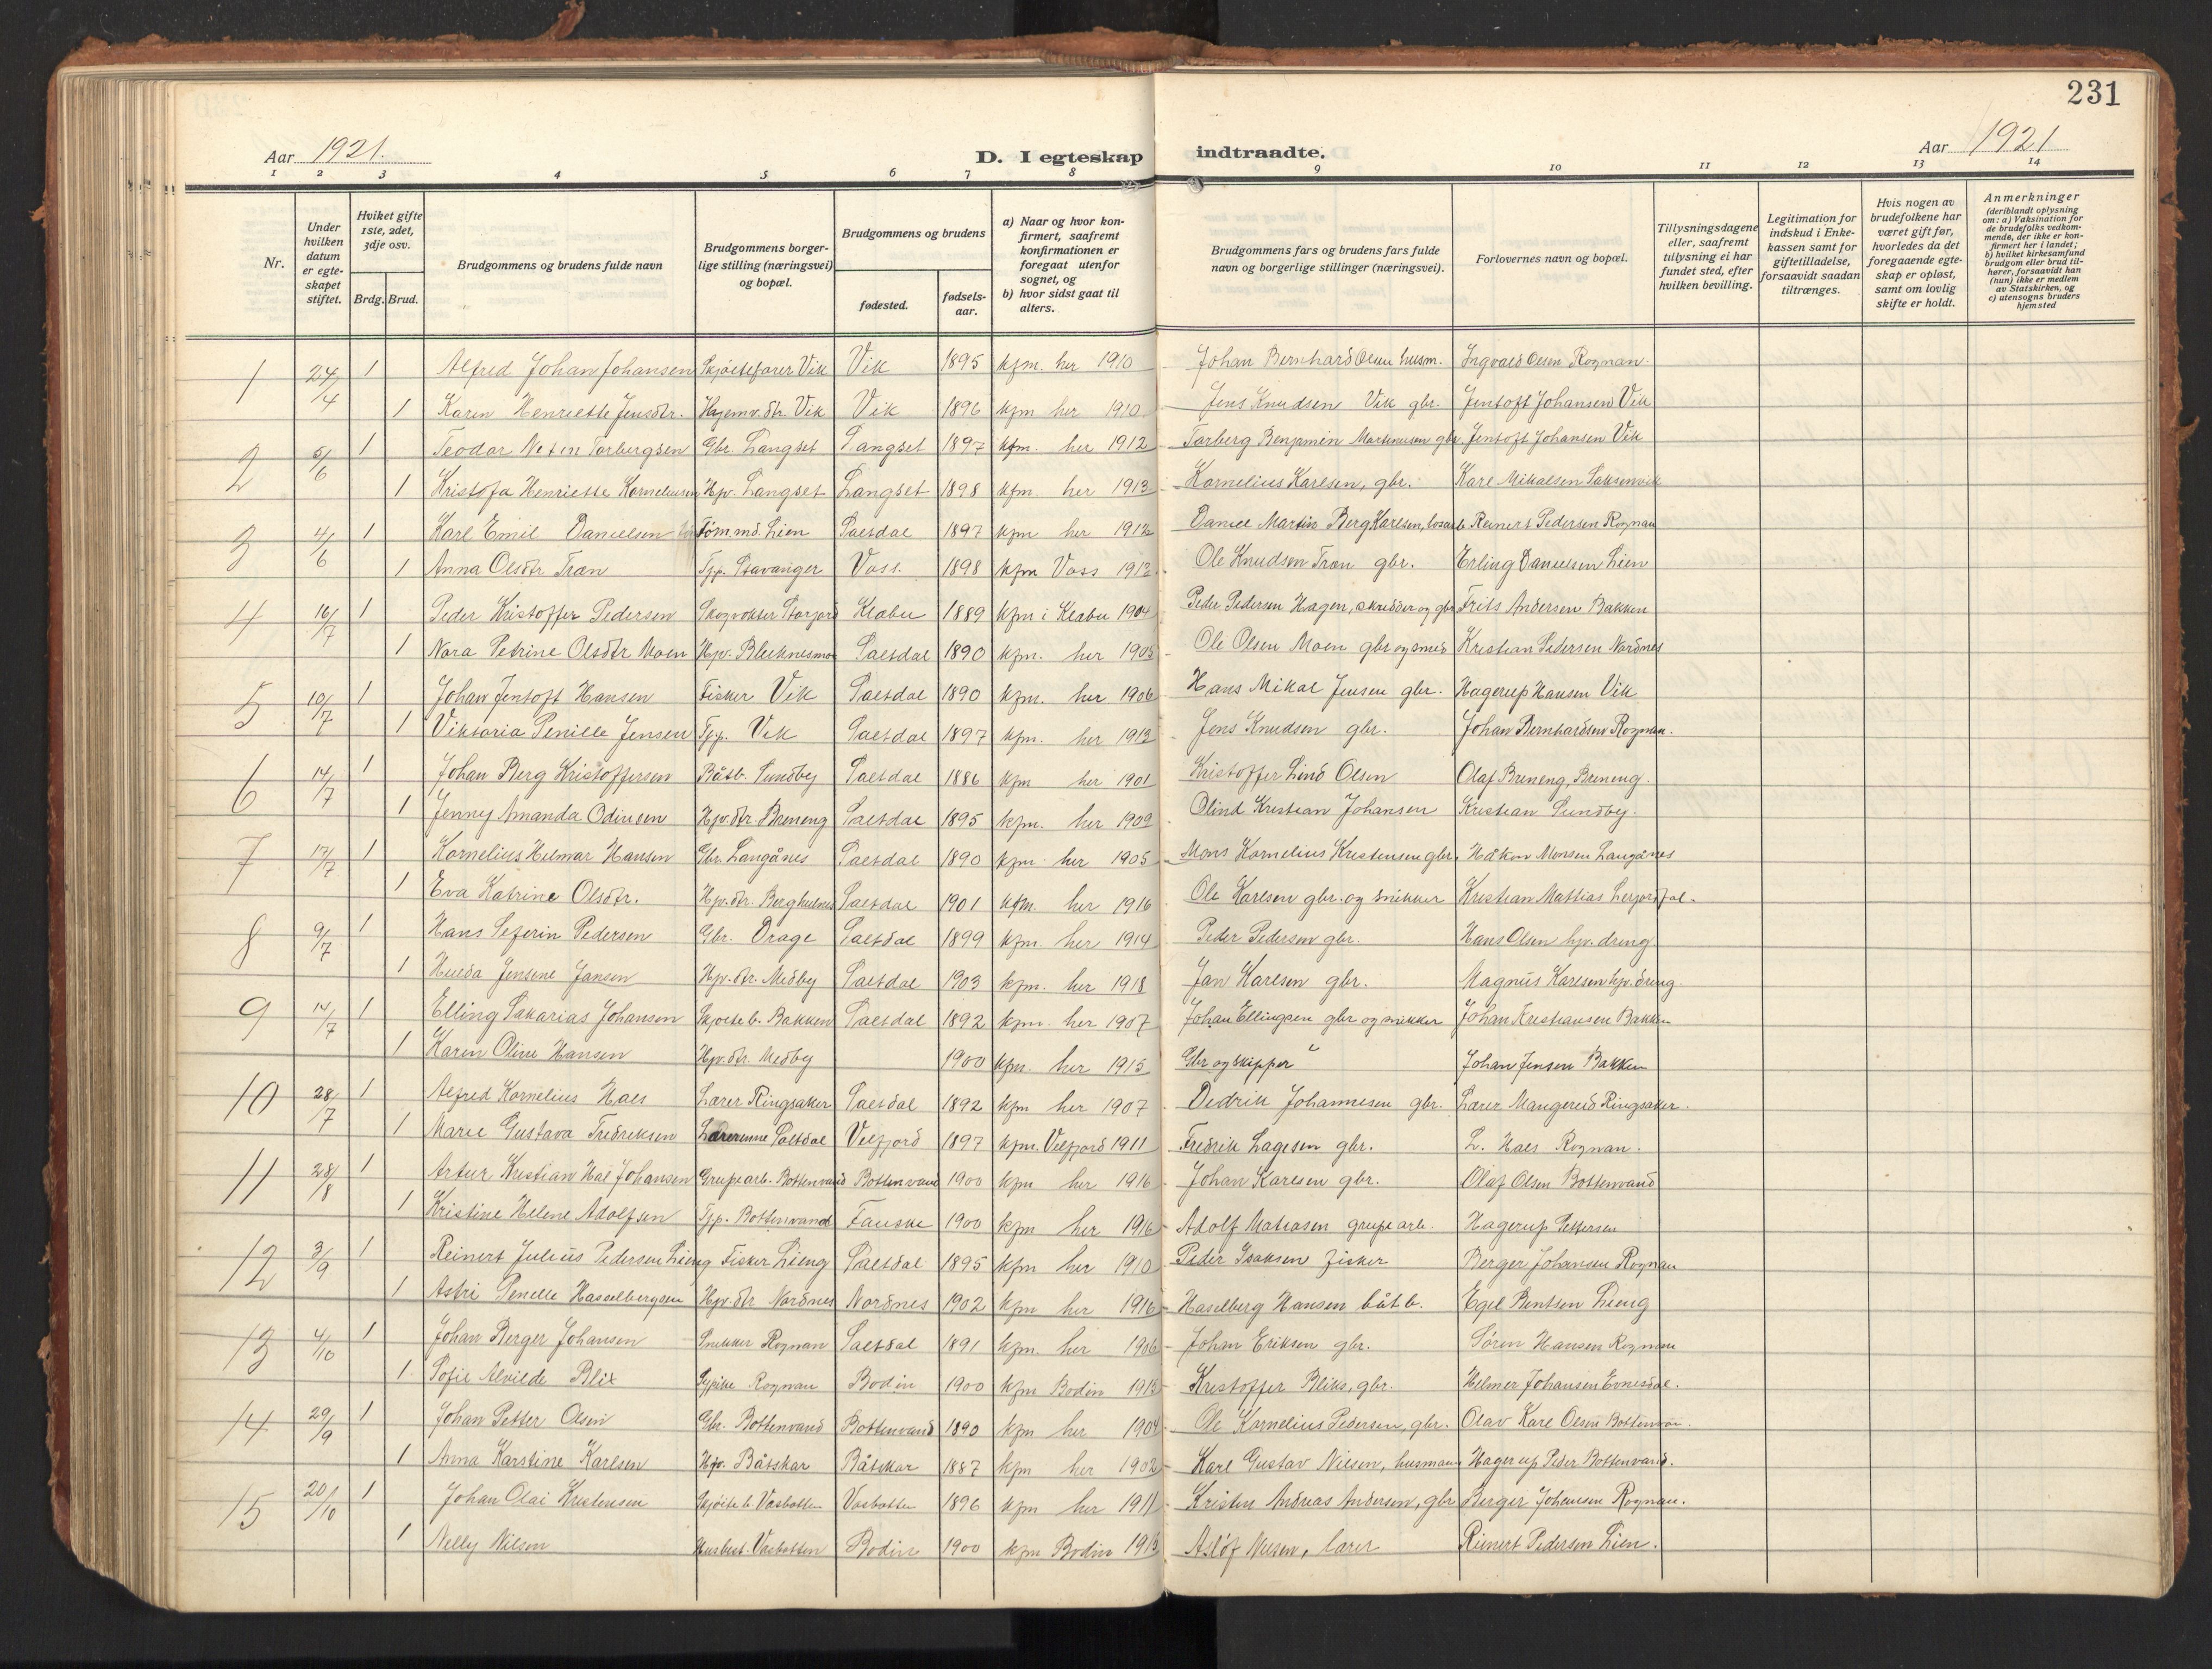 231
Aar 1921.
D. I egteskap indtraadte.
Aar 1921
1 2 3 4 5 6 7 8 9 10 11 12 13 14
Nr.
Under hvilken datum er egteskapet stiftet.
Hviket gifte 1ste, 2det, 3dje osv.
Brdg. Brud.
Brudgommens og brudens fulde navn
Brudgommens borgerlige stilling (næringsvei) og bopæl.
Brudgommens og brudens
fødested.
fødselsaar.
a) Naar og hvor konfirmert, saafremt konfirmationen er foregaat utenfor sognet, og
b) hvor sidst gaat til alters.
Brudgommens fars og brudens fars fulde navn og borgerlige stillinger (næringsvei).
Forlovernes navn og bopæl.
Tillysningsdagene eller, saafremt tillysning ei har fundet sted, efter hvilken bevilling.
Legitimation for indskud i Enkekassen samt for giftetilladelse, forsaavidt saadan tiltrænges.
Hvis nogen av brudefolkene har været gift før, hvorledes da det foregaaende egteskap er opløst, samt om lovlig skifte er holdt.
Anmerkninger (deriblandt oplysning om: a) Vaksination for de brudefolks vedkommende, der ikke er konfirmert her i landet; b) hvilket kirkesamfund brudgom eller brud tilhører, forsaavidt han (hun) ikke er medlem av Statskirken, og c) utensogns bruders hjemsted
1 24/4 1 Alfred Johan Johansen Skjøitefører Vik Vik 1895 kfm. her 1910 Johan Bernhard Olsen husm. Ingvald Olsen Rognan.
1 Karen Henriette Jensdtr. Hjemv. dtr. Vik Vik 1896 kfm her 1910 Jens Knudsen Vik gbr. Jentoft Johansen Vik
2 5/6 1 Teodor Torbergsen Gbr. Langset Langset 1897 kfm. her 1912 Torberg Benjamin Martinusen gbr. Jentoft Johansen Vik
1 Kristofa Henriette Korneliusen Hjv. Langset Langset 1898 kfm. her 1913 Kornelius Karlsen, gbr. Karl Mikalsen Saksenvik
3 4/6 1 Karl Emil Danielsen Tømmd. Lien Saltdal 1897 kfm her 1912 Daniel Martin Berg Karlsen, Reinert Pedersen Rognan
1 Anna Olsdtr Træn Tjp. Stavanger Voss. 1898 kfm Voss 1912 Ole Knudsen Træn gbr. Erling Danielsen Lien
4 16/7 1 Peder Kristoffer Pedersen Skogvokter Storjord Klæbu 1889 kfm i Klæbu 1904 Peder Pedersen Hagen, skredder og gbr Frits Andersen Bakken
1 Nora Petrine Olsdtr Moen Hjv. Bleiknesmo Saltdal 1890 kfm. her 1905 Ole Olsen Moen gbr og smed Kristian Pedersen Nordnes
5 10/7 1 Johan Jentoft Hansen Fisker Vik Saltdal 1890 kfm. her 1906 Hans Mikal Jensen gbr. Hagerup Hansen Vik
1 Viktoria Penille Jensen Tjp. Vik Saltdal 1897 kfm. her 1912 Jens Knudsen gbr. Johan Bernhardsen Rognan.
6 14/7 1 Johan Berg Kristoffersen Båtb. Sundby Saltdal 1886 kfm her 1901 Kristoffer Lind Olsen Olaf Breneng, Breneng.
1 Jenny Amanda Odinsen Hjv. dtr. Breneng Saltdal 1895 kfm. her 1909 Olind Kristian Johansen Kristian Sundby.
7 17/7 1 Kornelius Helmar Hansen Gbr. Langånes Saltdal 1890 kfm. her 1905 Mons Kornelius Kristensen gbr. Håkon Monsen Langånes
1 Eva Katrine Olsdtr. Hjv. dtr. Berghulnes Saltdal 1901 kfm. her 1916 Ole Karlsen gbr. og snikker Kristian Mattias
8 9/7 1 Hans Seferin Pedersen Gbr. Drage Saltdal 1899 kfm. her 1914 Peder Pedersen gbr. Hans Olsen hjv. dreng
1 Hulda Jensene Jansen Hjv. dtr. Medby Saltdal 1903 kfm. her 1918 Jan Karlsen gbr. Magnus Karlsen hjv. dreng
9 14/7 1 Elling Sakarias Johansen Skjøiteb. Bakken Saltdal 1892 kfm. her 1907 Johan Ellingsen gbr og snikker Johan Kristiansen Bakken
1 Karen Oline Hansen Hjv. dtr. Medby 1900 kfm. her 1915 Gbr og skipper Johan Jensen Bakken
10 28/7 1 Alfred Kornelius Hals Lærer Ringsaker Saltdal 1892 kfm her 1907 Didrik Johannesen gbr. Lærer Mangerud Ringsaker.
1 Marie Gustava Fredriksen Lærerinne Saltdal Velfjord 1897 kfm. Velfjord 1911 Fredrik Lagesen gbr. L. Hals Rognan.
11 28/8 1 Artur Kristian Hal Johansen Grupearb. Bottenvand Bottenvand 1900 kfm her 1916 Johan Karlsen gbr. Olaf Olsen Bottenvand
1 Kristine Helene Adolfsen Tjp. Bottenvand Fauske 1900 kfm her 1916 Adolf Matiasen grupearb. Hagerup Pettersen
12 3/9 1 Reinert Julius Pedersen Lieng Fisker Lieng Saltdal 1895 kfm her 1910 Peder Isaksen fisker Berger Johansen Rognan
1 Astri Penelle Hasselbergsen Hjv. dtr Nordnes Nordnes 1902 kfm her 1916 Haselberg Hansen båtb. Egil Bentsen Lieng
13 4/10 1 Johan Berger Johansen Snekker Rognan Saltdal 1891 kfm. her 1906 Johan Eriksen gbr. Søren Hansen Rognan
1 Sofie Alvilde Blix Rognan Bodin 1900 kfm Bodin 1915 Kristoffer Bliks, gbr. Helmer Johansen Evnesdal.
14 29/9 1 Johan Petter Olsen Gbr. Bottenvand Bottenvand 1890 kfm her 1904 Ole Kornelius Pedersen, gbr. Olav Karl Olsen Bottenvan.
1 Anna Karstine Karlsen Hjv. Båtskar Båtskar 1887 kfm her 1902 Karl Gustav Nilsen, husmann Hagerup Peder Bottenvand.
15 20/10 1 Johan Olai Kristensen Skjøiteb. Vasbotten Vasbotten 1896 kfm her 1911 Kristen Andreas Andersen, gbr Berger Johansen Rognan.
1 Nelly Nilsen Husbest. Vasbotten Bodin 1900 kfm Bodin 1915 Nilsen, lærer Reinert Pedersen Lien.